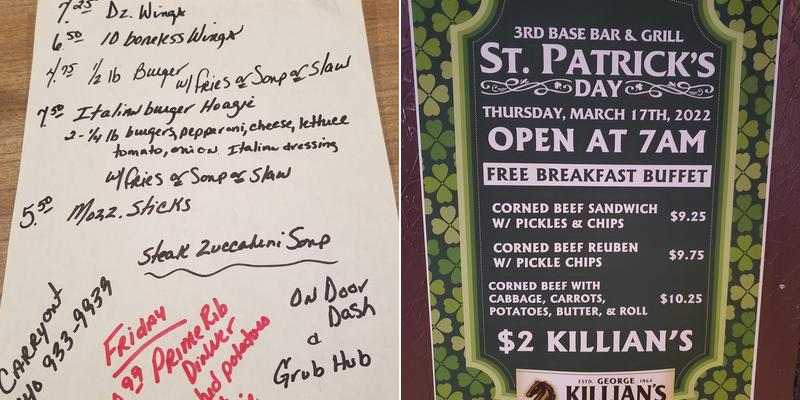 7.25 Dz. Wings
6.50 10 boneless Wings
4.75 1/2 lb Burger w/ Fries or Soup or Slaw
7.50 Italian burger Hoagie
2-1/4 lb burgers, pepparoni, cheese, lettuce
tomato, onion. Italian dressing
w/ Fries or Soup or Slaw
5.50 Mozz. Sticks
Steak Zuccahini Soup
CARRYout
933-9939
Friday
99 Prime Rib
Dinner
potatoes
ON Door
Dash
&
Grub Hub
3RD BASE BAR & GRILL
ST. PATRICK'S
DAY
THURSDAY, MARCH 17TH, 2022
OPEN AT 7AM
FREE BREAKFAST BUFFET
CORNED BEEF SANDWICH
W/ PICKLES & CHIPS $9.25
CORNED BEEF REUBEN
W/ PICKLE CHIPS $9.75
CORNED BEEF WITH
CABBAGE, CARROTS,
POTATOES, BUTTER, & ROLL $10.25
$2 KILLIAN'S
ESTD. GEORGE 1864
KILLIAN'S